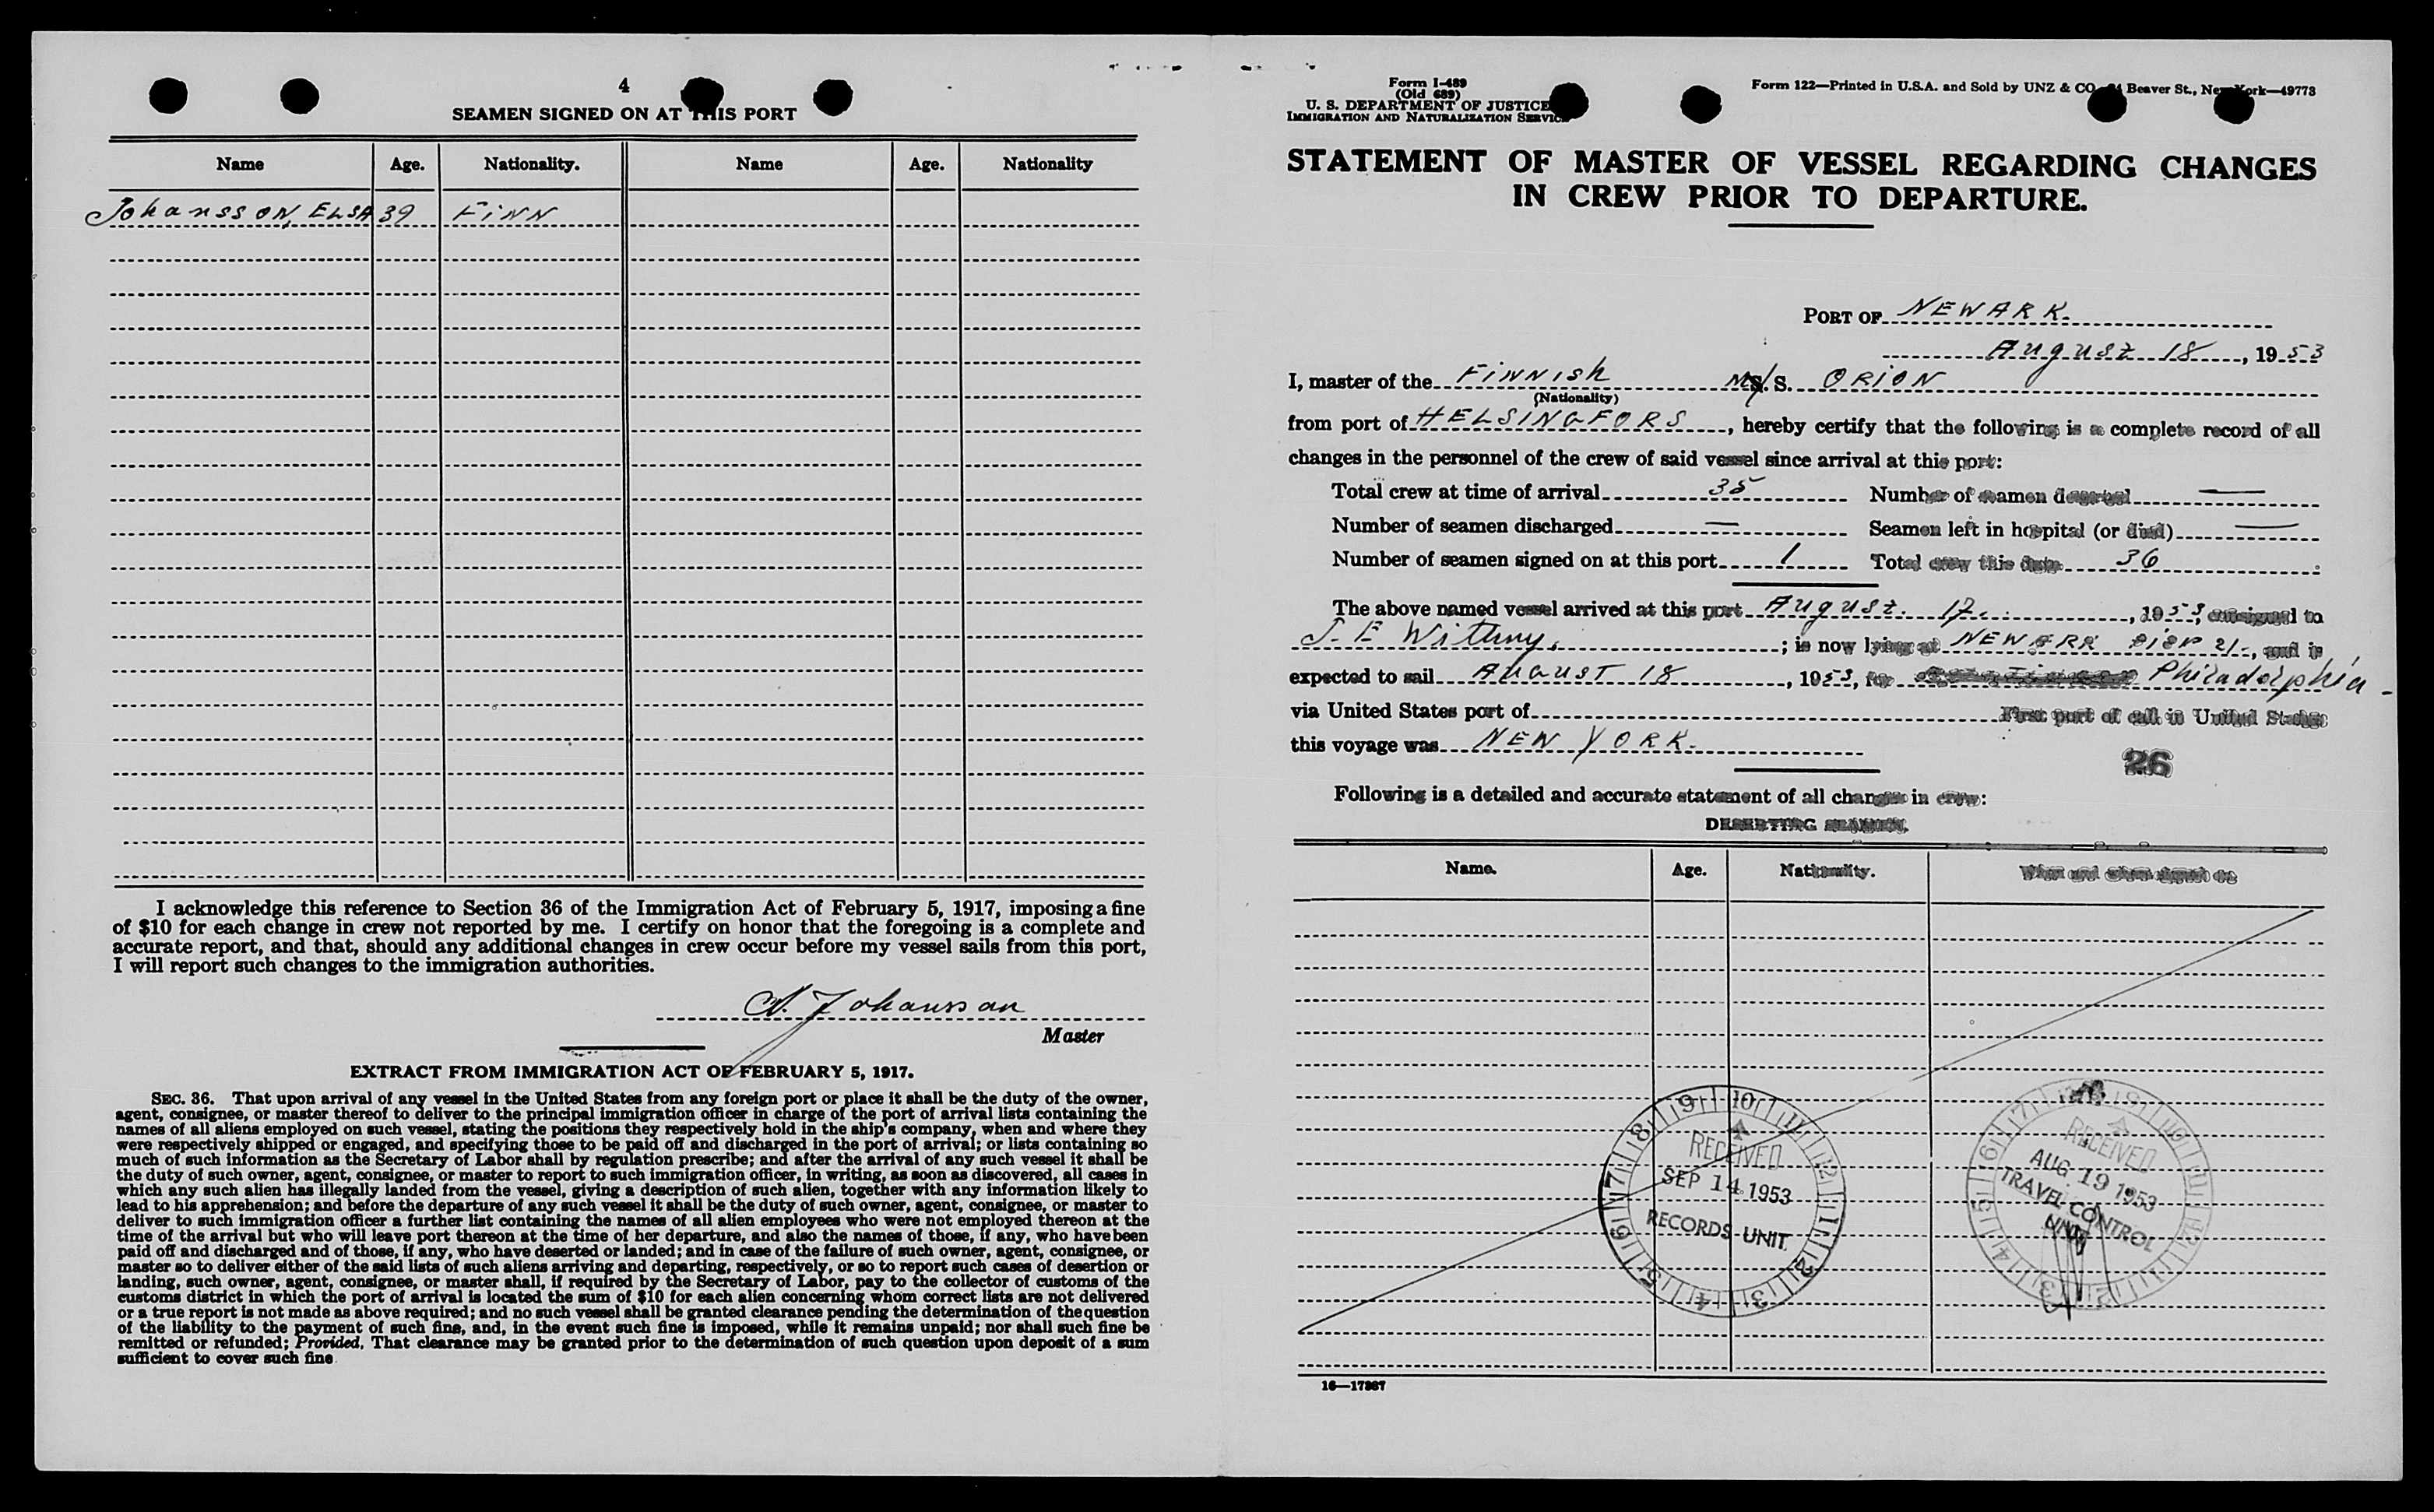 4
SEAMEN SIGNED ON AT THIS PORT
Name Age. Nationality. Name Age. Nationality
Johansson, ELSA 39 FINN
I acknowledge this reference to Section 36 of the Immigration Act of February 5, 1917, imposing a fine
of $10 for each change in crew not reported by me. I certify on honor that the foregoing is a complete and
accurate report, and that, should any additional changes in crew occur before my vessel sails from this port,
I will report such changes to the immigration authorities.
A. Johansson
Master
EXTRACT FROM IMMIGRATION ACT OF FEBRUARY 5, 1917.
SEC. 36. That upon arrival of any vessel in the United States from any foreign port or place it shall be the duty of the owner,
agent, consignee, or master thereof to deliver to the principal immigration officer in charge of the port of arrival lists containing the
names of all aliens employed on such vessel, stating the positions they respectively hold in the ship's company, when and where they
were respectively shipped or engaged, and specifying those to be paid off and discharged in the port of arrival; or lists containing so
much of such information as the Secretary of Labor shall by regulation prescribe; and after the arrival of any such vessel it shall be
the duty of such owner, agent, consignee, or master to report to such immigration officer, in writing, as soon as discovered, all cases in
which any such alien has illegally landed from the vessel, giving a description of such alien, together with any information likely to
lead to his apprehension; and before the departure of any such vessel it shall be the duty of such owner, agent, consignee, or master to
deliver to such immigration officer a further list containing the names of all alien employees who were not employed thereon at the
time of the arrival but who will leave port thereon at the time of her departure, and also the names of those, if any, who have been
paid off and discharged and of those, if any, who have deserted or landed; and in case of the failure of such owner, agent, consignee, or
master so to deliver either of the said lists of such aliens arriving and departing, respectively, or so to report such cases of desertion or
landing, such owner, agent, consignee, or master shall, if required by the Secretary of Labor, pay to the collector of customs of the
customs district in which the port of arrival is located the sum of $10 for each alien concerning whom correct lists are not delivered
or a true report is not made as above required; and no such vessel shall be granted clearance pending the determination of the question
of the liability to the payment of such fine, and, in the event such fine is imposed, while it remains unpaid; nor shall such fine be
remitted or refunded; Provided, That clearance may be granted prior to the determination of such question upon deposit of a sum
sufficient to cover such fine
Form I-489
(Old 689)
U. S. DEPARTMENT OF JUSTICE
IMMIGRATION AND NATURALIZATION SERVICE
Form 122—Printed in U.S.A. and Sold by UNZ & CO Beaver St., New York—49773
STATEMENT OF MASTER OF VESSEL REGARDING CHANGES
IN CREW PRIOR TO DEPARTURE.
PORT OF NEWARK.
August 18, 1953
I, master of the Finnish M/S. ORION
(Nationality)
from port of HELSINGFORS, hereby certify that the following is a complete record of all
changes in the personnel of the crew of said vessel since arrival at this port:
Total crew at time of arrival 35 Number of seamen deserted —
Number of seamen discharged — Seamen left in hospital (or died) —
Number of seamen signed on at this port 1 Total crew this date 36
The above named vessel arrived at this port August 17, 1953, consigned to
J. E Withny, ; is now lying at NEWARK PIER 21, and is
expected to sail AUGUST 18, 1953, for Philadelphia -
via United States port of First port of call in United States
this voyage was NEW YORK.
26
Following is a detailed and accurate statement of all changes in crew:
DESERTING SEAMEN.
Name. Age. Nationality. When and where signed on
9 10 11 12 1 2 3 4 5 6 7 8
RECEIVED
SEP 14 1953
RECORDS UNIT
RECEIVED
AUG 19 1953
TRAVEL CONTROL
16—17367